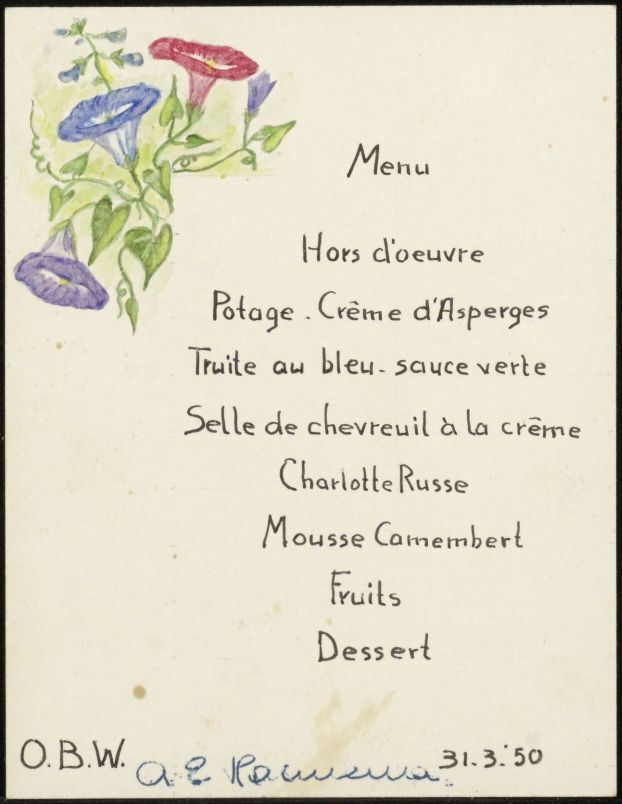 Menu
Hors d'oeuvre
Potage. Crême d'Asperges
Truite au bleu - sauce verte
Selle de chevreuil à la crême
Charlotte Russe
Mousse Camembert
Fruits
Dessert
O.B.W. 31.3.'50